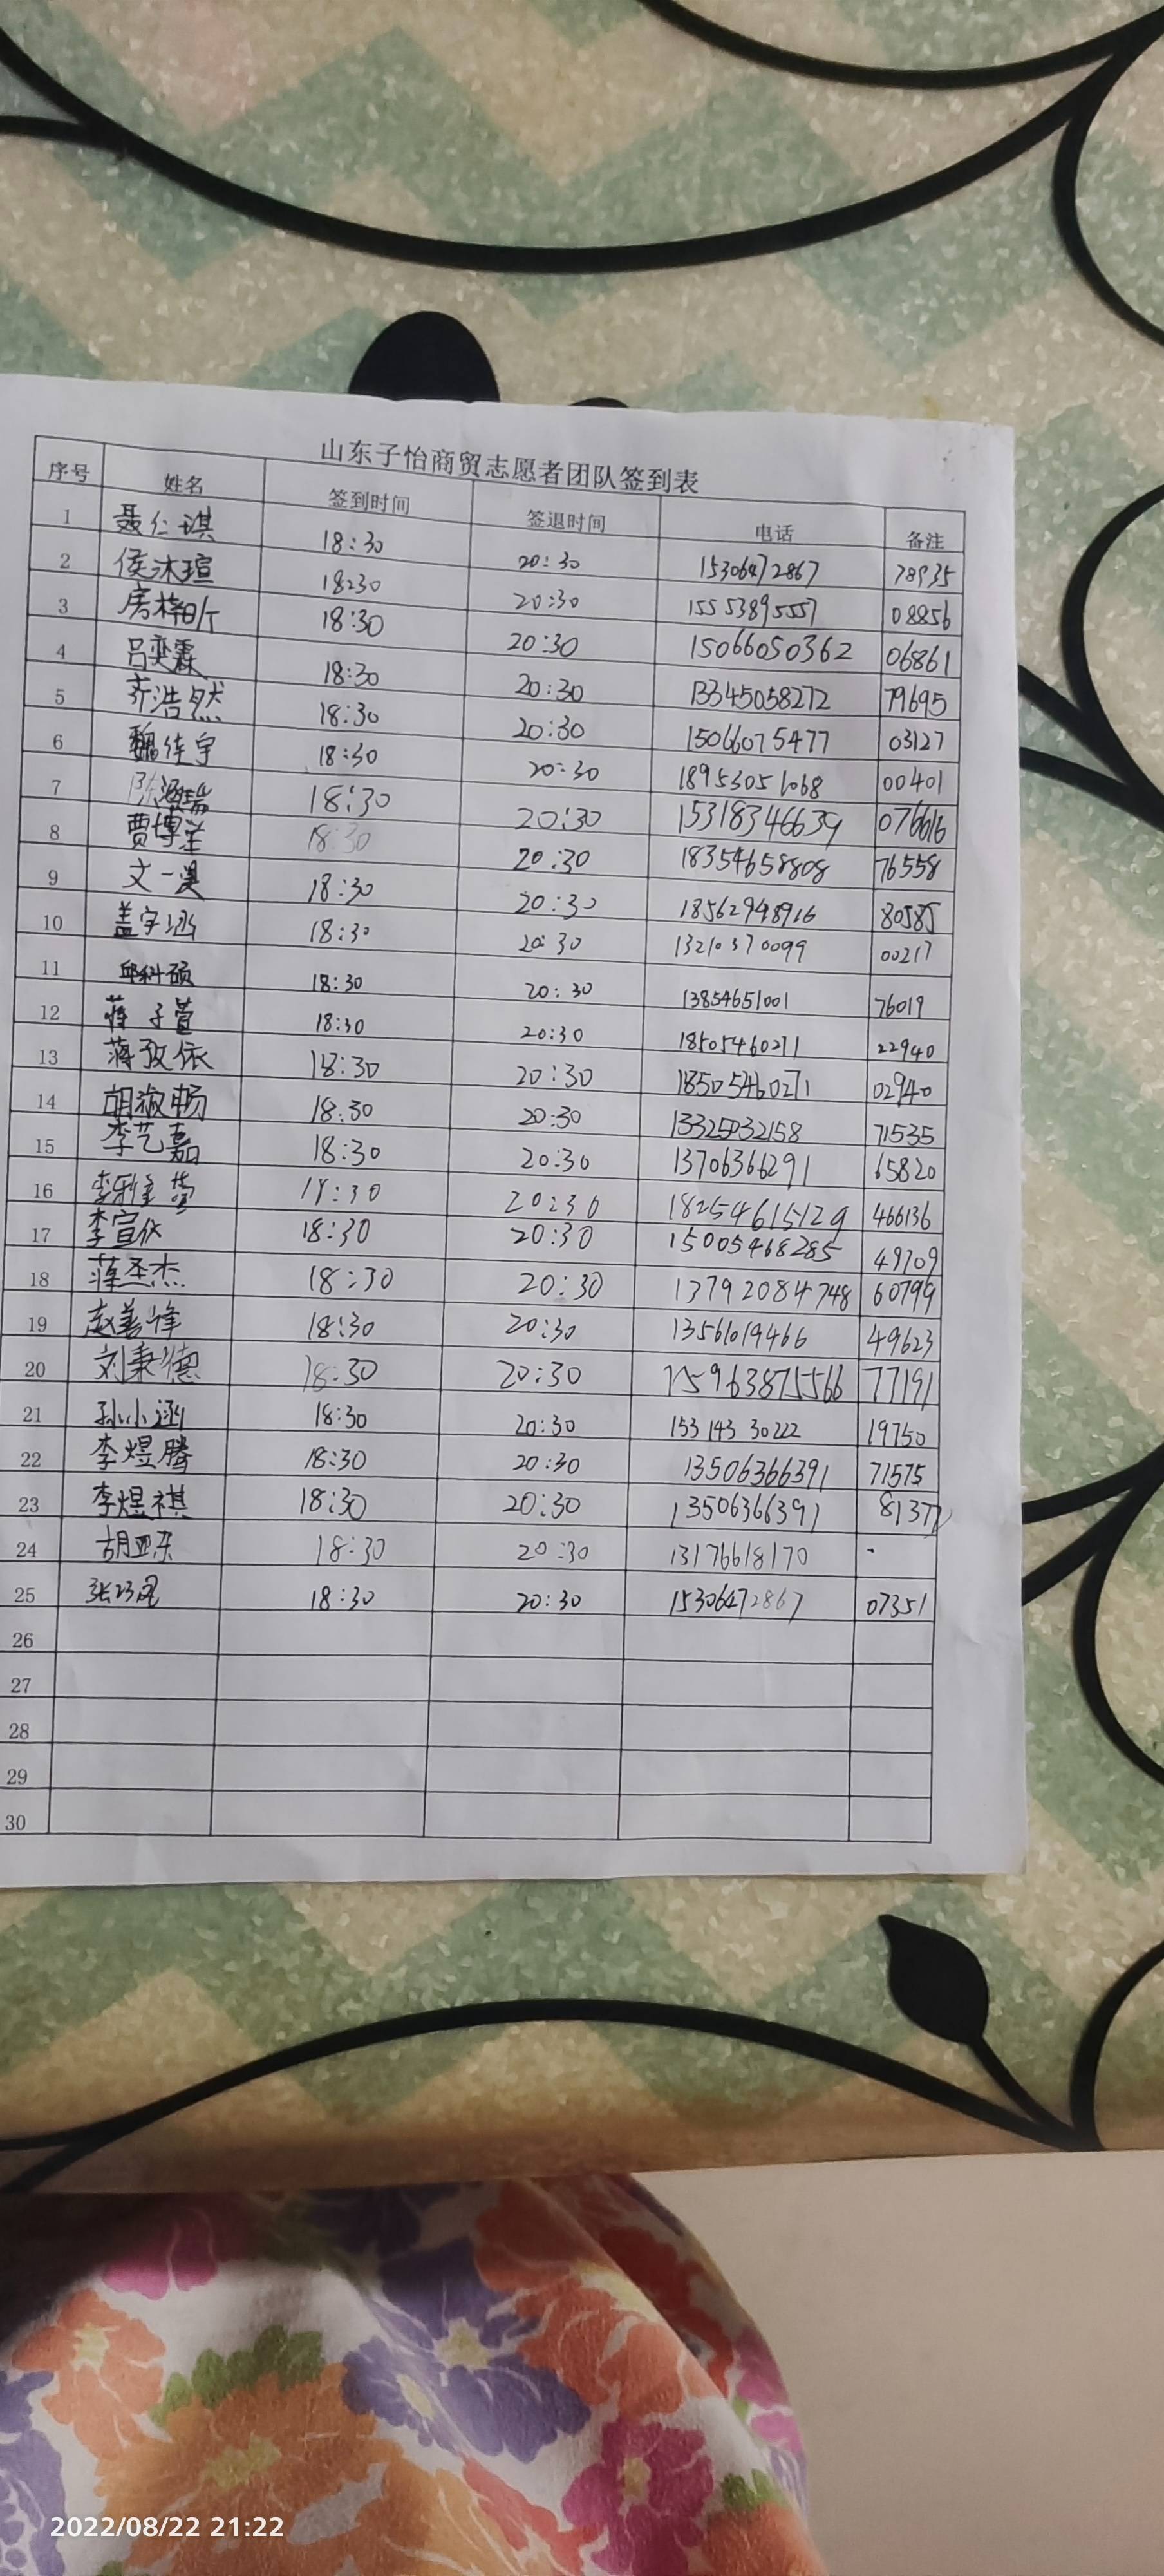 山东子怡商贸志愿者团队签到表
序号 姓名 签到时间 签退时间 电话 备注
1 聂仁琪 18:30 20:30 15306472867 78935
2 侯沐瑄 18:30 20:30 15553895557 08856
3 房梓 18:30 20:30 15066050362 06861
4 吕奕霖 18:30 20:30 13345058272 79695
5 乔浩然 18:30 20:30 15066075477 03127
6 魏佳宇 18:30 20:30 18953051068 00401
7 陈瑞 18:30 20:30 15318346639 076616
8 贾博 18:30 20:30 18354658808 76558
9 文一昊 18:30 20:30 18562948916 80585
10 盖宇涵 18:30 20:30 13210370099 00217
11 邱科硕 18:30 20:30 13854651001 76019
12 蒋子萱 18:30 20:30 18505460271 22940
13 蒋孜依 18:30 20:30 18505460271 02940
14 胡淑畅 18:30 20:30 13325032158 71535
15 李艺嘉 18:30 20:30 13706366291 65820
16 李 18:30 20:30 18254615129 466136
17 李宣依 18:30 20:30 15005468285 49709
18 薄圣杰 18:30 20:30 13792084748 60799
19 赵善烽 18:30 20:30 13561019466 49623
20 刘秉德 18:30 20:30 15963875566 77191
21 孙小涵 18:30 20:30 153 143 30222 19750
22 李煜腾 18:30 20:30 13506366391 71575
23 李煜祺 18:30 20:30 13506366391 81377
24 胡亚东 18:30 20:30 13176618170
25 张 18:30 20:30 15306472867 07351
26
27
28
29
30
2022/08/22 21:22